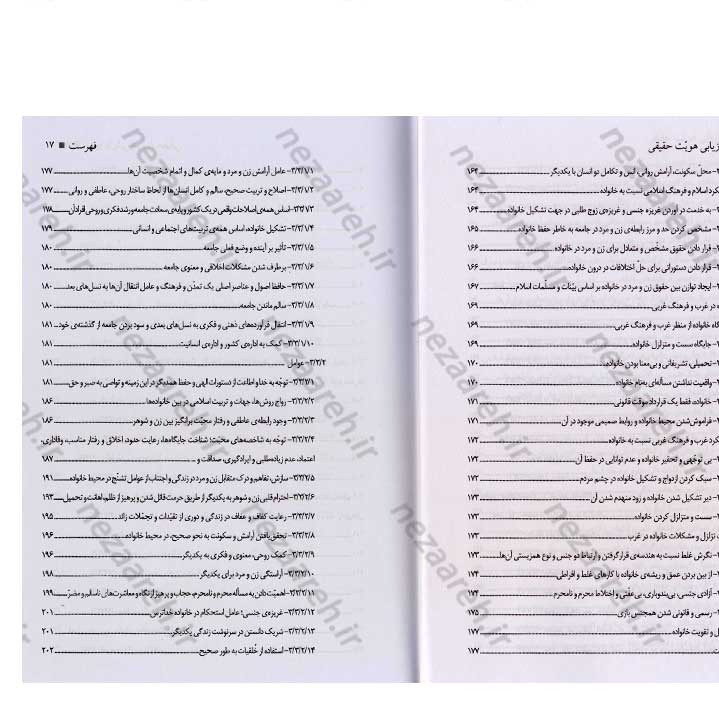 زیابی هویّت حقیقی
- محلّ سکونت، آرامش روانی، انس و تکامل دو انسان با یکدیگر ۱۶۲
کرد اسلام و فرهنگ اسلامی نسبت به خانواده ۱۶۴
- به خدمت در آوردن غریزه جنسی و غریزه‌ی زوج طلبی در جهت تشکیل خانواده ۱۶۴
- مشخص کردن حد و مرز رابطه‌ی زن و مرد در جامعه به خاطر حفظ خانواده ۱۶۵
- قرار دادن حقوق مشخّص و متعادل برای زن و مرد در خانواده ۱۶۶
- قرار دادن دستوراتی برای حلّ اختلافات در درون خانواده ۱۶۶
- ایجاد توازن بین حقوق زن و مرد در خانواده بر اساس بیّنات و مسلّمات اسلام ۱۶۷
ه در غرب و فرهنگ غربی ۱۶۹
گاه خانواده از منظر غرب و فرهنگ غربی ۱۶۹
- جایگاه سست و متزلزل خانواده ۱۶۹
- تحمیلی، تشریفاتی و بی‌معنا بودن خانواده ۱۷۰
- واقعیت نداشتن مسأله‌ای به‌نام خانواده ۱۷۰
- خانواده، فقط یک قرارداد موقت قانونی ۱۷۱
- فراموش‌شدن محیط خانواده و روابط صمیمی موجود در آن ۱۷۱
کرد غرب و فرهنگ غربی نسبت به خانواده ۱۷۲
- بی توجّهی و تحقیر خانواده و عدم توانایی در حفظ آن ۱۷۲
- سبک کردن ازدواج و تشکیل خانواده در چشم مردم ۱۷۲
- دیر تشکیل شدن خانواده و زود منهدم شدن آن ۱۷۳
- سست و متزلزل کردن خانواده ۱۷۳
تزلزل و مشکلات خانواده در غرب ۱۷۳
- نگرش غلط نسبت به هندسه‌ی قرار گرفتن و ارتباط دو جنس و نوع همزیستی آن‌ها ۱۷۳
- از بین بردن عمق و ریشه‌ی خانواده با کارهای غلط و افراطی ۱۷۴
- آزادی جنسی، بی‌بندوباری، بی‌عفّتی و اختلاط محرم و نامحرم ۱۷۴
- رسمی و قانونی شدن همجنس بازی ۱۷۵
ل و تقویت خانواده ۱۷۷
ت ۱۷۷
فهرست ■ ۱۷
۳/۳/۱/۱- عامل آرامش زن و مرد و مایه‌ی کمال و اتمام شخصیت آن‌ها ۱۷۷
۳/۳/۱/۲- اصلاح و تربیت صحیح، سالم و کامل انسان‌ها از لحاظ ساختار روحی، عاطفی و روانی ۱۷۷
۳/۳/۱/۳- اساس همه‌ی اصلاحات واقعی در یک کشور و پایه‌ی سعادت جامعه و رشد فکری و روحی افراد آن ۱۷۸
۳/۳/۱/۴- تشکیل خانواده، اساس همه‌ی تربیت‌های اجتماعی و انسانی ۱۷۹
۳/۳/۱/۵- تأثیر بر آینده و وضع فعلی جامعه ۱۸۰
۳/۳/۱/۶- برطرف شدن مشکلات اخلاقی و معنوی جامعه ۱۸۰
۳/۳/۱/۷- حافظ اصول و عناصر اصلی یک تمدّن و فرهنگ و عامل انتقال آن‌ها به نسل‌های بعد ۱۸۰
۳/۳/۱/۸- سالم ماندن جامعه ۱۸۰
۳/۳/۱/۹- انتقال فرآورده‌های ذهنی و فکری به نسل‌های بعدی و سود بردن جامعه از گذشته‌ی خود ۱۸۱
۳/۳/۱/۱۰- کمک به اداره‌ی کشور و اداره‌ی انسانیت ۱۸۱
۳/۳/۲- عوامل ۱۸۱
۳/۳/۲/۱- توجّه به خدا و اطاعت از دستورات الهی و حفظ همدیگر در این زمینه و تواصی به صبر و حق ۱۸۱
۳/۳/۲/۲- رواج روش‌ها، جهات و تربیت اسلامی در بین خانواده‌ها ۱۸۶
۳/۳/۲/۳- وجود رابطه‌ی عاطفی و رفتار محبّت برانگیز بین زن و شوهر ۱۸۶
۳/۳/۲/۴- توجّه به شاخصه‌های محبّت؛ شناخت جایگاه‌ها، رعایت حدود، اخلاق و رفتار مناسب، وفاداری،
اعتماد، عدم زیاده‌طلبی و ایرادگیری، صداقت و ... ۱۸۷
۳/۳/۲/۵- سازش، تفاهم و درک متقابل زن و مرد در زندگی و اجتناب از عوامل تشنّج در محیط خانواده ۱۹۱
۳/۳/۲/۶- احترام قلبی زن و شوهر به یکدیگر از طریق حرمت قائل شدن و پرهیز از ظلم، اهانت و تحمیل ۱۹۳
۳/۳/۲/۷- رعایت کفاف و عفاف در زندگی و دوری از تقیّدات و تجمّلات زائد ۱۹۵
۳/۳/۲/۸- تحقق یافتن آرامش و سکونت به نحو صحیح، در محیط خانواده ۱۹۶
۳/۳/۲/۹- کمک روحی، معنوی و فکری به یکدیگر ۱۹۶
۳/۳/۲/۱۰- آراستگی زن و مرد برای یکدیگر ۱۹۸
۳/۳/۲/۱۱- اهمیّت دادن به مسأله محرم و نامحرم، حجاب و پرهیز از نگاه و معاشرت‌های ناسالم و مضرّ ۱۹۹
۳/۳/۲/۱۲- غریزه‌ی جنسی؛ عامل استحکام در خانواده خداترس ۲۰۱
۳/۳/۲/۱۳- شریک دانستن در سرنوشت زندگی یکدیگر ۲۰۱
۳/۳/۲/۱۴- استفاده از خُلقیات به طور صحیح ۲۰۲
nezaareh.ir